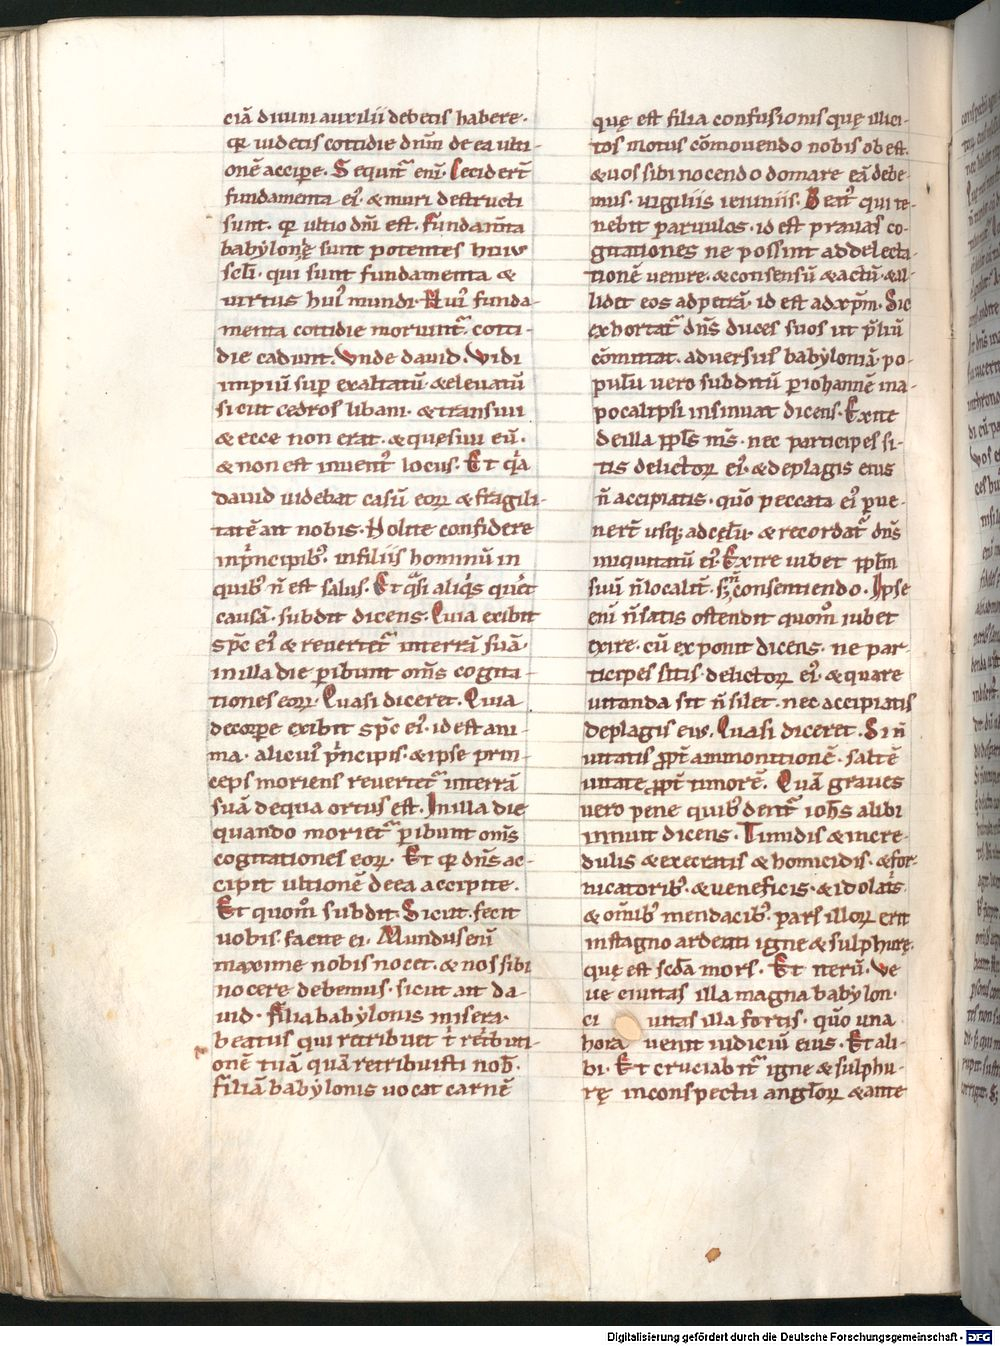 ciā diuini auxilii debetis habere.
qr uidetis cottidie dn̄m de ea ulti-
onē accipe. Sequit᷑ eni. Cecidert̄
fundamenta ei᷒. & muri destructi
sunt. qr ultio dn̄i est. Fundam̄ta
babylonę sunt potentes huius
scl̄i. qui sunt fundamenta &
uirtus hui᷒ mundi. Nui᷒ funda-
menta cottidie moriunt᷑. cotti-
die cadunt. Vnde dauid. Vidi
impiū sup exaltatū & eleuatū
sicut cedros libani. & transiui
& ecce non erat. & quesiui eū.
& non est inuent᷒ locus. Et qͣa
dauid uidebat casū eoꝝ & fragili-
tatē ait nobis. Nolite confidere
in pͥncipib᷒. in filiis hominū in
quib᷒ n̄ est salus. Et qͣsi aliqͥs querēt
causā. subdit dicens. Quia exibit
sp̄c ei᷒ & reuertet᷑ in terrā suā.
in illa die pibunt om̄s cogita-
tiones eoꝝ. Quasi diceret. Quia
de corpe exibit sp̄c ei᷒. id est ani-
ma. alicui᷒ pͥncipis. & ipse prin-
ceps moriens reuertet᷑ in terrā
suā de qua ortus est. In illa die
quando moriet᷑ pibunt om̄s
cogitationes eoꝝ. Et qr dn̄s ac-
cipit ultionē de ea accipite.
Et quom̄ subdit. Sicut fecit
uobis. facite ei. Mundus eni
maxime nobis nocet. & nos sibi
nocere debemus. sicut ait da-
uid. filia babylonis misera.
beatus qui retribuet t̄ retͥbuti-
onē tuā quā retribuisti nob᷒.
Filiā babylonis uocat carnē
quę est filia confusionis quę illici-
tos motus cōmouendo nobis obest.
& uos sibi nocendo domare eā debe-
mus. uigiliis ieiuniis. Beat᷒ qui te-
nebit paruulos. id est prauas co-
gitationes ne possint ad delecta-
tionē uenire. & consensū & actū. & al-
lidet eos ad petrā. id est ad xp̄m. Sic
exhortat᷑ dn̄s duces suos ut p̄liū
cōmittat. aduersus babyloniā. po-
pul̄u uero subditū p iohannē in a-
pocalipsi insinuat dicens. Exite
de illa ppl̄s m̄s. nec participes si-
tis delictoꝝ ei᷒. & de plagis eius
n̄ accipiatis. quō peccata ei᷒ pue-
nert̄ usq; ad cęlū. & recordat᷑ dn̄s
iniquitatū ei᷒. Exire iubet ppl̄m
suū n̄ localit̄. s; n̄ consentiendo. Ipse
eni n̄ satis ostendit quom̄ iubet
exire. cū exponit dicens. ne par-
ticipes sitis. delictoꝝ ei᷒. & quare
uitanda sit n̄ silet. nec accipiatis
de plagis eius. Quasi diceret. Si n̄
uitatis ꝓpt̄ ammonitionē. saltē
uitate ꝓpt̄ timorē. Quā graues
uero pene quib᷒ dent᷑ ioh̄s alibi
innuit dicens. Timidis & incre-
dulis & execratis & homicidis. & for-
nicatorib᷒. & ueneficis. & idolatͥs
& om̄ib᷒ mendacib᷒. pars illoꝝ erit
in stagno ardenti igne & sulphurę.
quę est scd̄a mors. Et iterū. Ve
ue ciuitas illa magna babylon.
ci uitas illa fortis. quō una
hora uenit iudiciū eius. Et ali-
bi. Et cruciabit᷑ igne & sulphu-
rę in conspectu angl̄oꝝ & ante
Digitalisierung gefördert durch die Deutsche Forschungsgemeinschaft - DFG